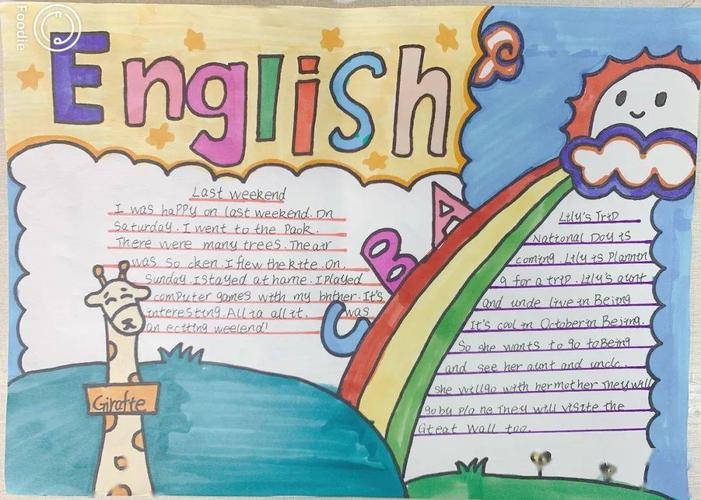 Foodie
English
A
B
C
Last weekend
I was happy on last weekend. On
Saturday. I went to the Pook.
There were many trees. The air
was so cken. I flew the kite. On.
Sunday. I stayed at home. I played
computer games with my bnther. It's
interesting. All ia all it. was
an eciting weelend!
Giraffe
Lily's Trip
National Day is
coming. Lily is Plannin
g for a trip. Lily's aunt
and unde live in Beijing
It's cool in October in Beijing.
So she wants to go to Beijing
and see her aunt and uncle.
she will go with her mother They will
go by plane They will visite the
Great Wall too.